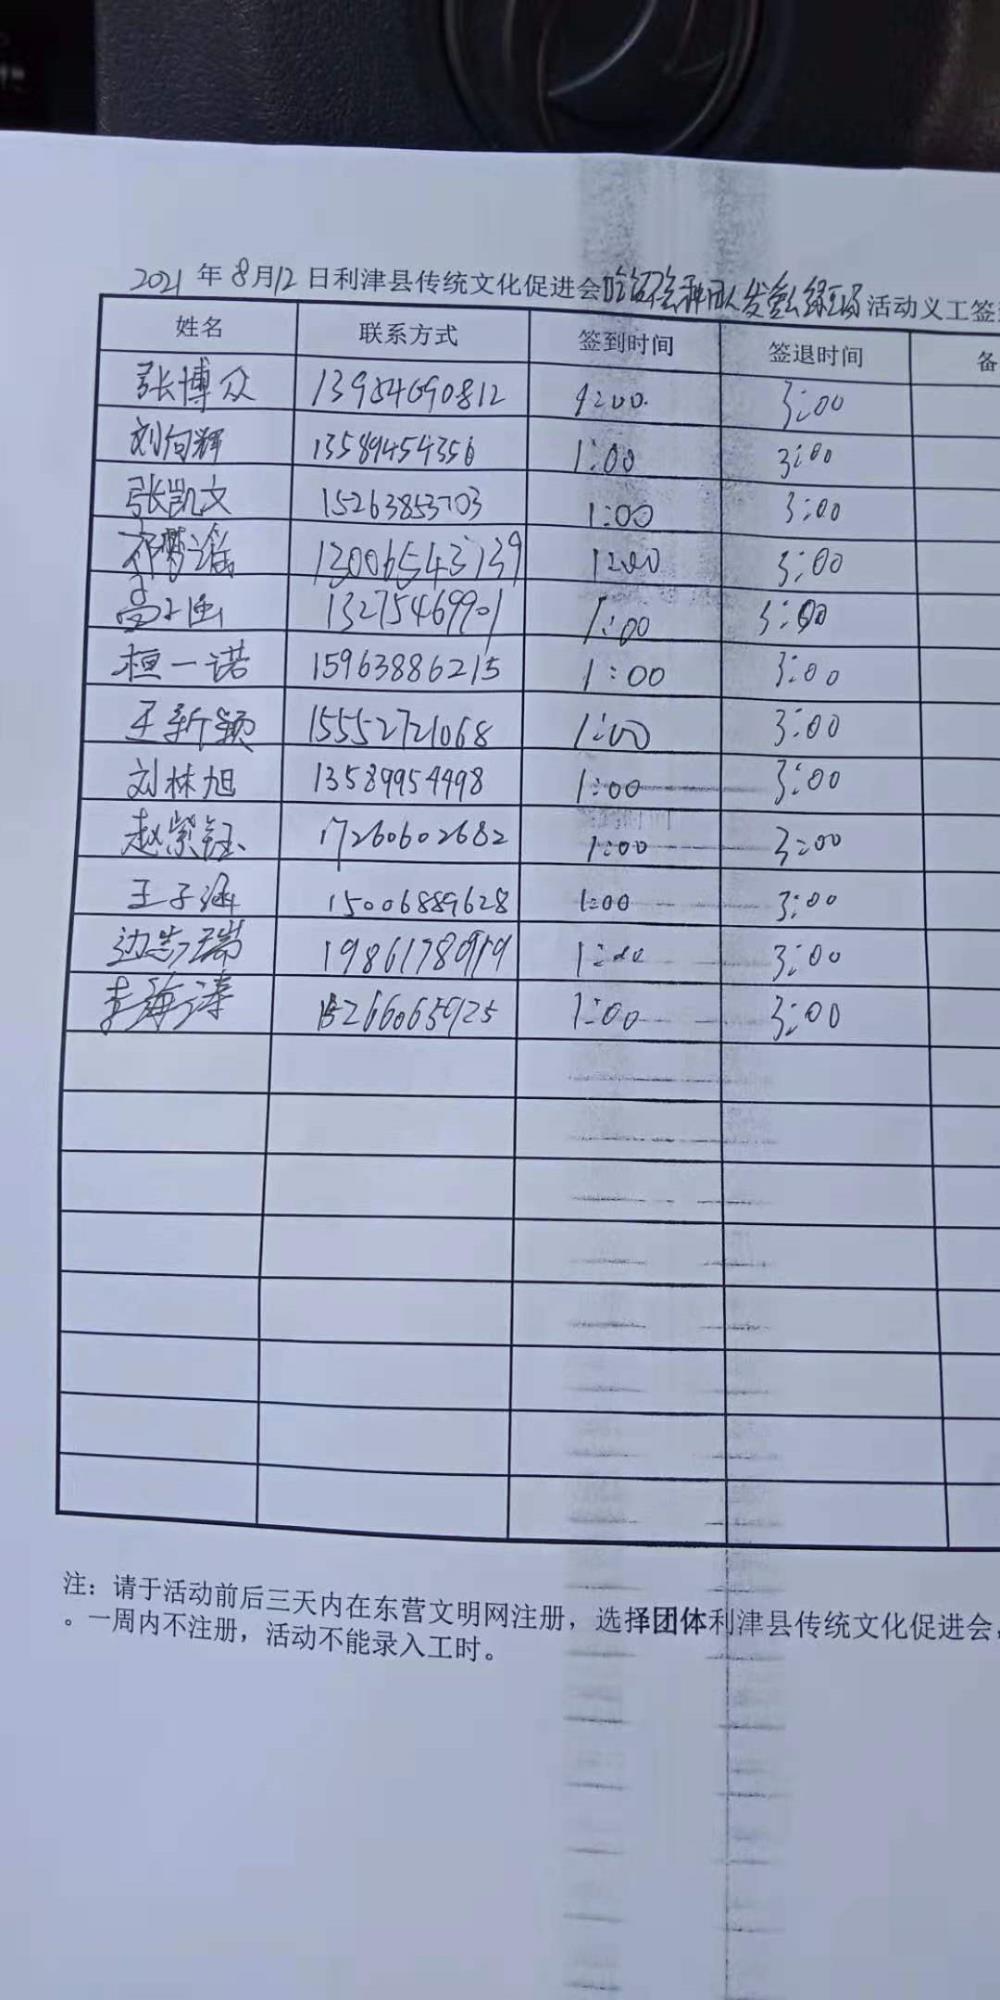 2021 年 8月12 日利津县传统文化促进会 活动义工签
姓名 联系方式 签到时间 签退时间 备
张博众 13984690812 1:00 3:00
刘向辉 13589454356 1:00 3:00
张凯文 15263853703 1:00 3:00
13006543139 1:00 3:00
13275469901 1:00 3:00
桓一诺 15963886215 1:00 3:00
王新颖 15552721068 1:00 3:00
刘林旭 13589954498 1:00 3:00
赵紫钰 17260602682 1:00 3:00
王子涵 15006889628 1:00 3:00
边志瑞 1:00 3:00
李海涛 15266065925 1:00 3:00
注：请于活动前后三天内在东营文明网注册，选择团体利津县传统文化促进会，
。一周内不注册，活动不能录入工时。